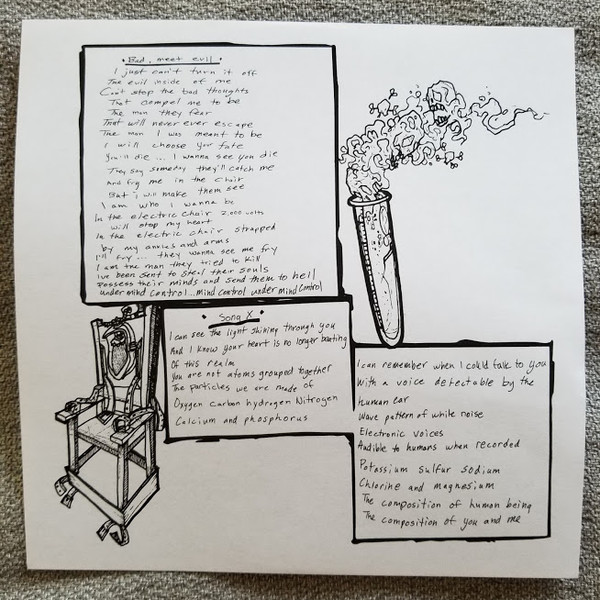 Bad, meet evil
I just can't turn it off
The evil inside of me
Can't stop the bad thoughts
That compel me to be
The man they fear
That will never ever escape
The man I was meant to be
I will choose your fate
You'll die ... I wanna see you die
They say someday they'll catch me
And fry me in the chair
But i will make them see
I am who I wanna be
In the electric chair 2,000 volts
will stop my heart
In the electric chair strapped
by my ankles and arms
I'll fry ... they wanna see me fry
I am the man they tried to kill
I've been sent to steal their souls
Possess their minds and send them to hell
under mind control ... mind control under mind control
Song X
I can see the light shining through you
And I know your heart is no longer beating
Of this realm
You are not atoms grouped together
The particles we are made of
Oxygen carbon hydrogen Nitrogen
Calcium and phosphorus
I can remember when I could talk to you
With a voice detectable by the
human ear
Wave pattern of white noise
Electronic voices
Audible to humans when recorded
Potassium sulfur sodium
Chlorine and magnesium
The composition of human being
The composition of you and me